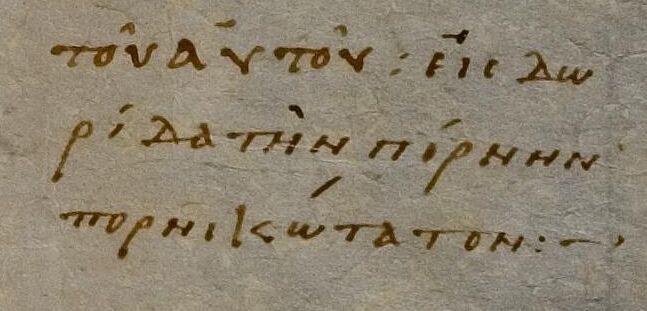 τοῦ αὐτοῦ: εἰς δω
ρίδα τὴν πόρνην
πορνικώτατον:—